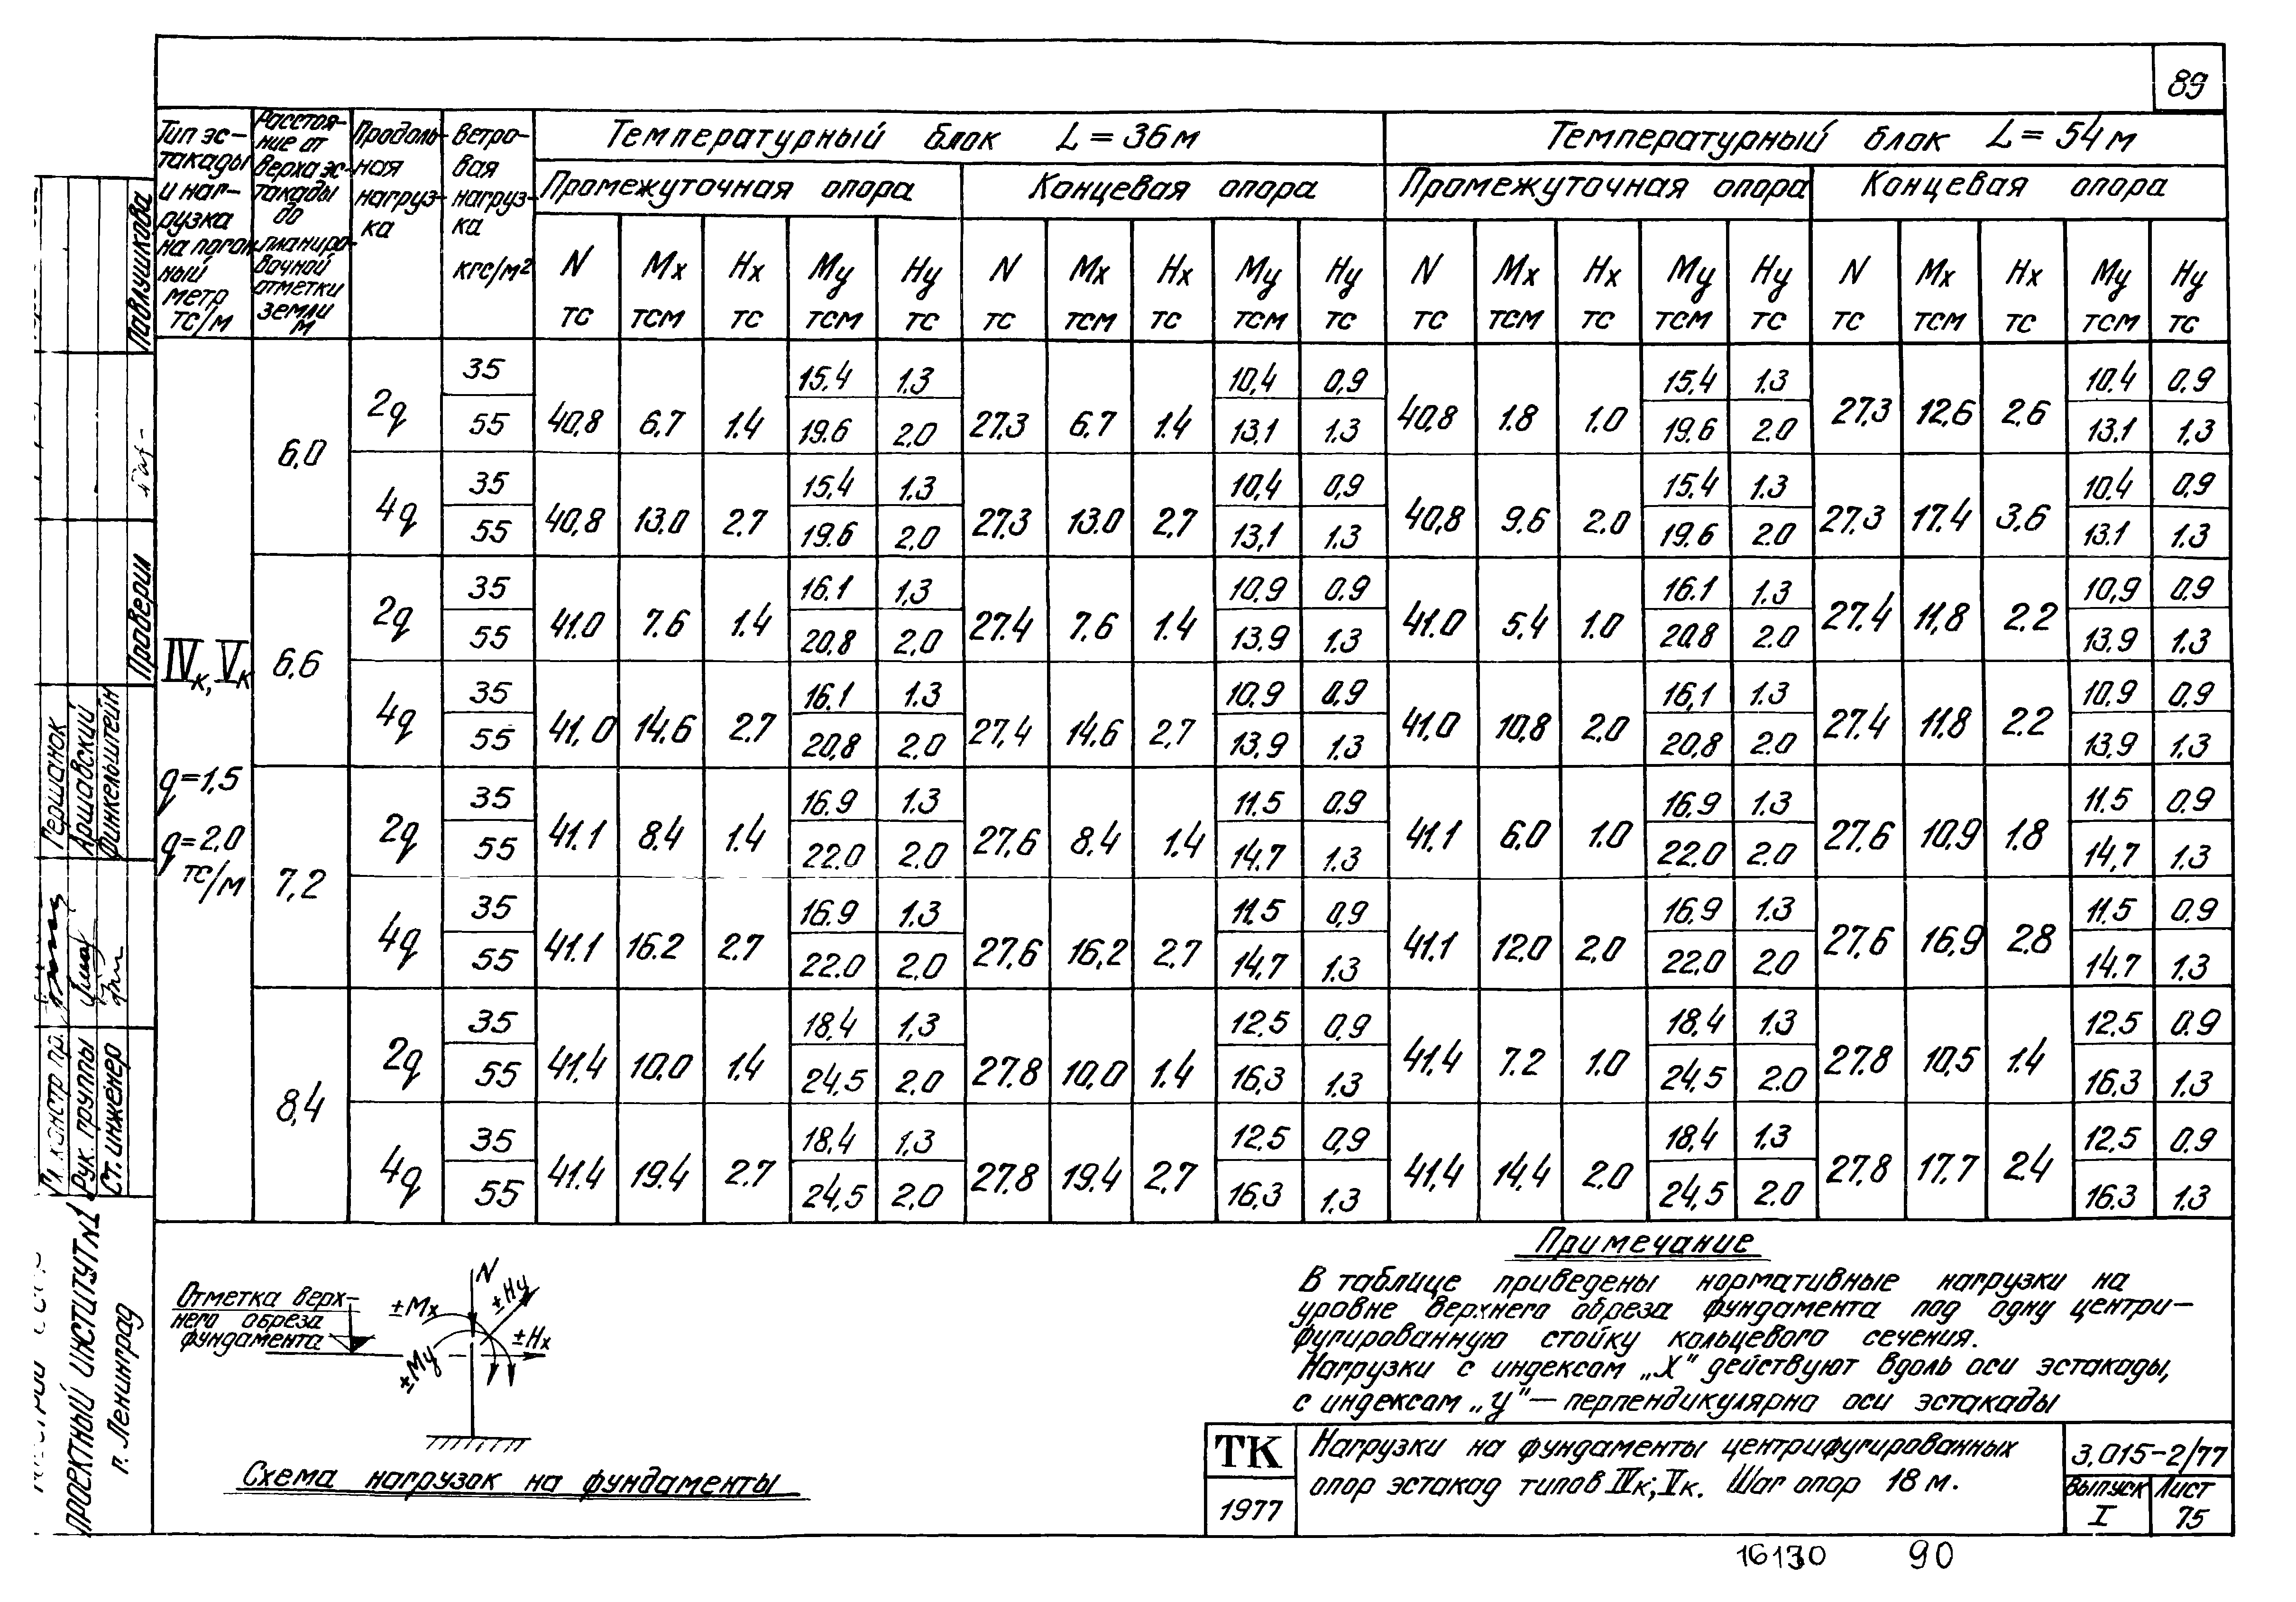 89
Тип эс-
такады
и наг-
рузка
на погон
ный
метр
тс/м
Расстоя-
ние от
верха эс-
такады
до
планиро-
вочной
отметки
земли
м
Продоль-
ная
нагруз-
ка
Ветро-
вая
нагруз-
ка
кгс/м²
Температурный блок L = 36 м
Температурный блок L = 54 м
Промежуточная опора
Концевая опора
Промежуточная опора
Концевая опора
N Mx Hx My Hy N Mx Hx My Hy N Mx Hx My Hy N Mx Hx My Hy
тс тсм тс тсм тс тс тсм тс тсм тс тс тсм тс тсм тс тс тсм тс тсм тс
IVк, Vк
q=1,5
q=2,0
тс/м
6,0
2q
35 15.4 1.3 10,4 0,9 15.4 1.3 10.4 0.9
40,8 6,7 1.4 27.3 6.7 1.4 40,8 1.8 1.0 27.3 12,6 2.6
55 19.6 2.0 13,1 1.3 19.6 2.0 13.1 1,3
4q
35 15,4 1.3 10,4 0,9 15.4 1.3 10.4 0,9
40,8 13.0 2.7 27.3 13.0 2.7 40,8 9.6 2.0 27.3 17.4 3.6
55 19.6 2,0 13,1 1.3 19.6 2.0 13.1 1.3
6,6
2q
35 16.1 1,3 10.9 0.9 16.1 1.3 10,9 0.9
41.0 7.6 1.4 27.4 7,6 1.4 41.0 5.4 1.0 27.4 11,8 2.2
55 20,8 2,0 13.9 1.3 20.8 2.0 13.9 1.3
4q
35 16.1 1.3 10.9 0.9 16,1 1.3 10.9 0.9
41,0 14.6 2.7 27.4 14.6 2,7 41.0 10,8 2.0 27.4 11.8 2.2
55 20,8 2.0 13.9 1.3 20,8 2.0 13.9 1.3
7,2
2q
35 16.9 1.3 11.5 0.9 16.9 1.3 11.5 0.9
41.1 8.4 1.4 27.6 8.4 1.4 41.1 6.0 1.0 27.6 10,9 1.8
55 22.0 2.0 14.7 1.3 22.0 2.0 14,7 1.3
4q
35 16.9 1.3 11.5 0,9 16.9 1.3 11.5 0.9
41.1 16.2 2.7 27.6 16,2 2.7 41.1 12.0 2.0 27.6 16,9 2.8
55 22.0 2.0 14,7 1.3 22.0 2.0 14.7 1.3
8,4
2q
35 18,4 1,3 12.5 0,9 18,4 1.3 12,5 0.9
41.4 10.0 1.4 27.8 10,0 1.4 41,4 7.2 1.0 27.8 10,5 1.4
55 24,5 2,0 16,3 1.3 24,5 2.0 16,3 1.3
4q
35 18,4 1,3 12.5 0,9 18,4 1.3 12,5 0.9
41.4 19.4 2.7 27.8 19.4 2,7 41,4 14,4 2.0 27,8 17.7 2.4
55 24,5 2,0 16.3 1.3 24,5 2.0 16.3 1.3
Отметка верх-
него обреза
фундамента
N
±Mx
±Hy
±Hx
±My
Схема нагрузок на фундаменты
Примечание
В таблице приведены нормативные нагрузки на
уровне верхнего обреза фундамента под одну центри-
фугированную стойку кольцевого сечения.
Нагрузки с индексом „X" действуют вдоль оси эстакады,
с индексом „У" – перпендикулярно оси эстакады
ТК
1977
Нагрузки на фундаменты центрифугированных
опор эстакад типов IVк; Vк. Шаг опор 18 м.
3.015-2/77
Выпуск
I
Лист
75
16130 90
Павлушкова
Проверил
Гершанок
Аршавский
Финкельштейн
Гл. констр. пр.
Рук. группы
Ст. инженер
ПРОЕКТНЫЙ ИНСТИТУТ №1
г. Ленинград